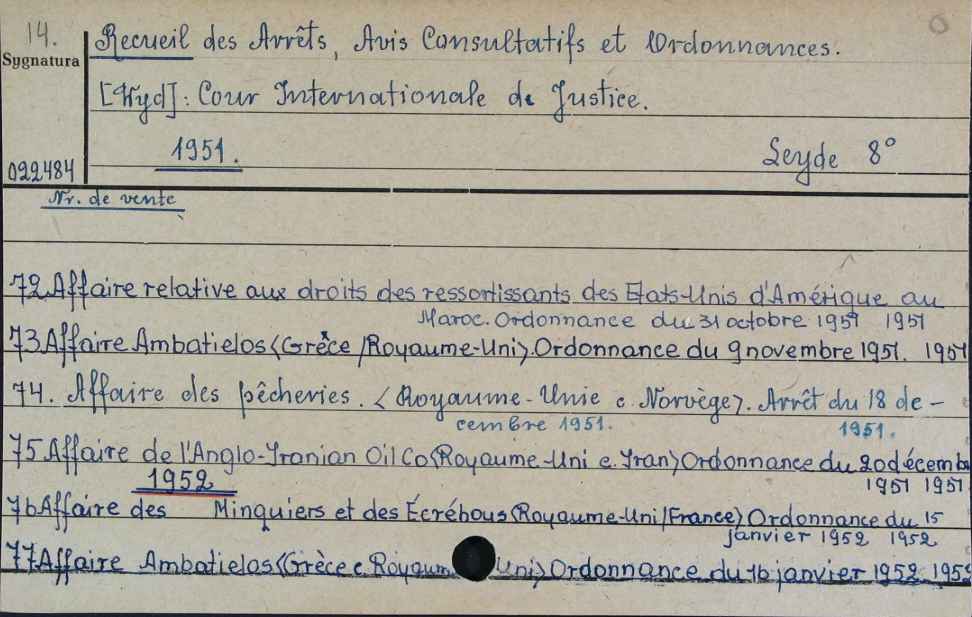 14.
Sygnatura
022484
Recueil des Arrêts, Avis Consultatifs et Ordonnances.
[Wyd]: Cour Internationale de Justice.
1951. Leyde 8°
Nr. de vente
72 Affaire relative aux droits des ressortissants des Etats-Unis d'Amérique au
Maroc. Ordonnance du 31 octobre 1951 1951
73 Affaire Ambatielos <Grèce / Royaume-Uni>. Ordonnance du 9 novembre 1951. 1951
74. Affaire des pêcheries. <Royaume-Unie c. Norvège>. Arrêt du 18 de-
cembre 1951. 1951.
75 Affaire de l'Anglo-Iranian Oil Co <Royaume-Uni c. Iran> Ordonnance du 20 décemb
1952 1951 1951
76 Affaire des Minquiers et des Écréhous <Royaume-Uni/France> Ordonnance du 15
janvier 1952 1952
77 Affaire Ambatielos <Grèce c. Royaum Uni> Ordonnance du 16 janvier 1952. 1952